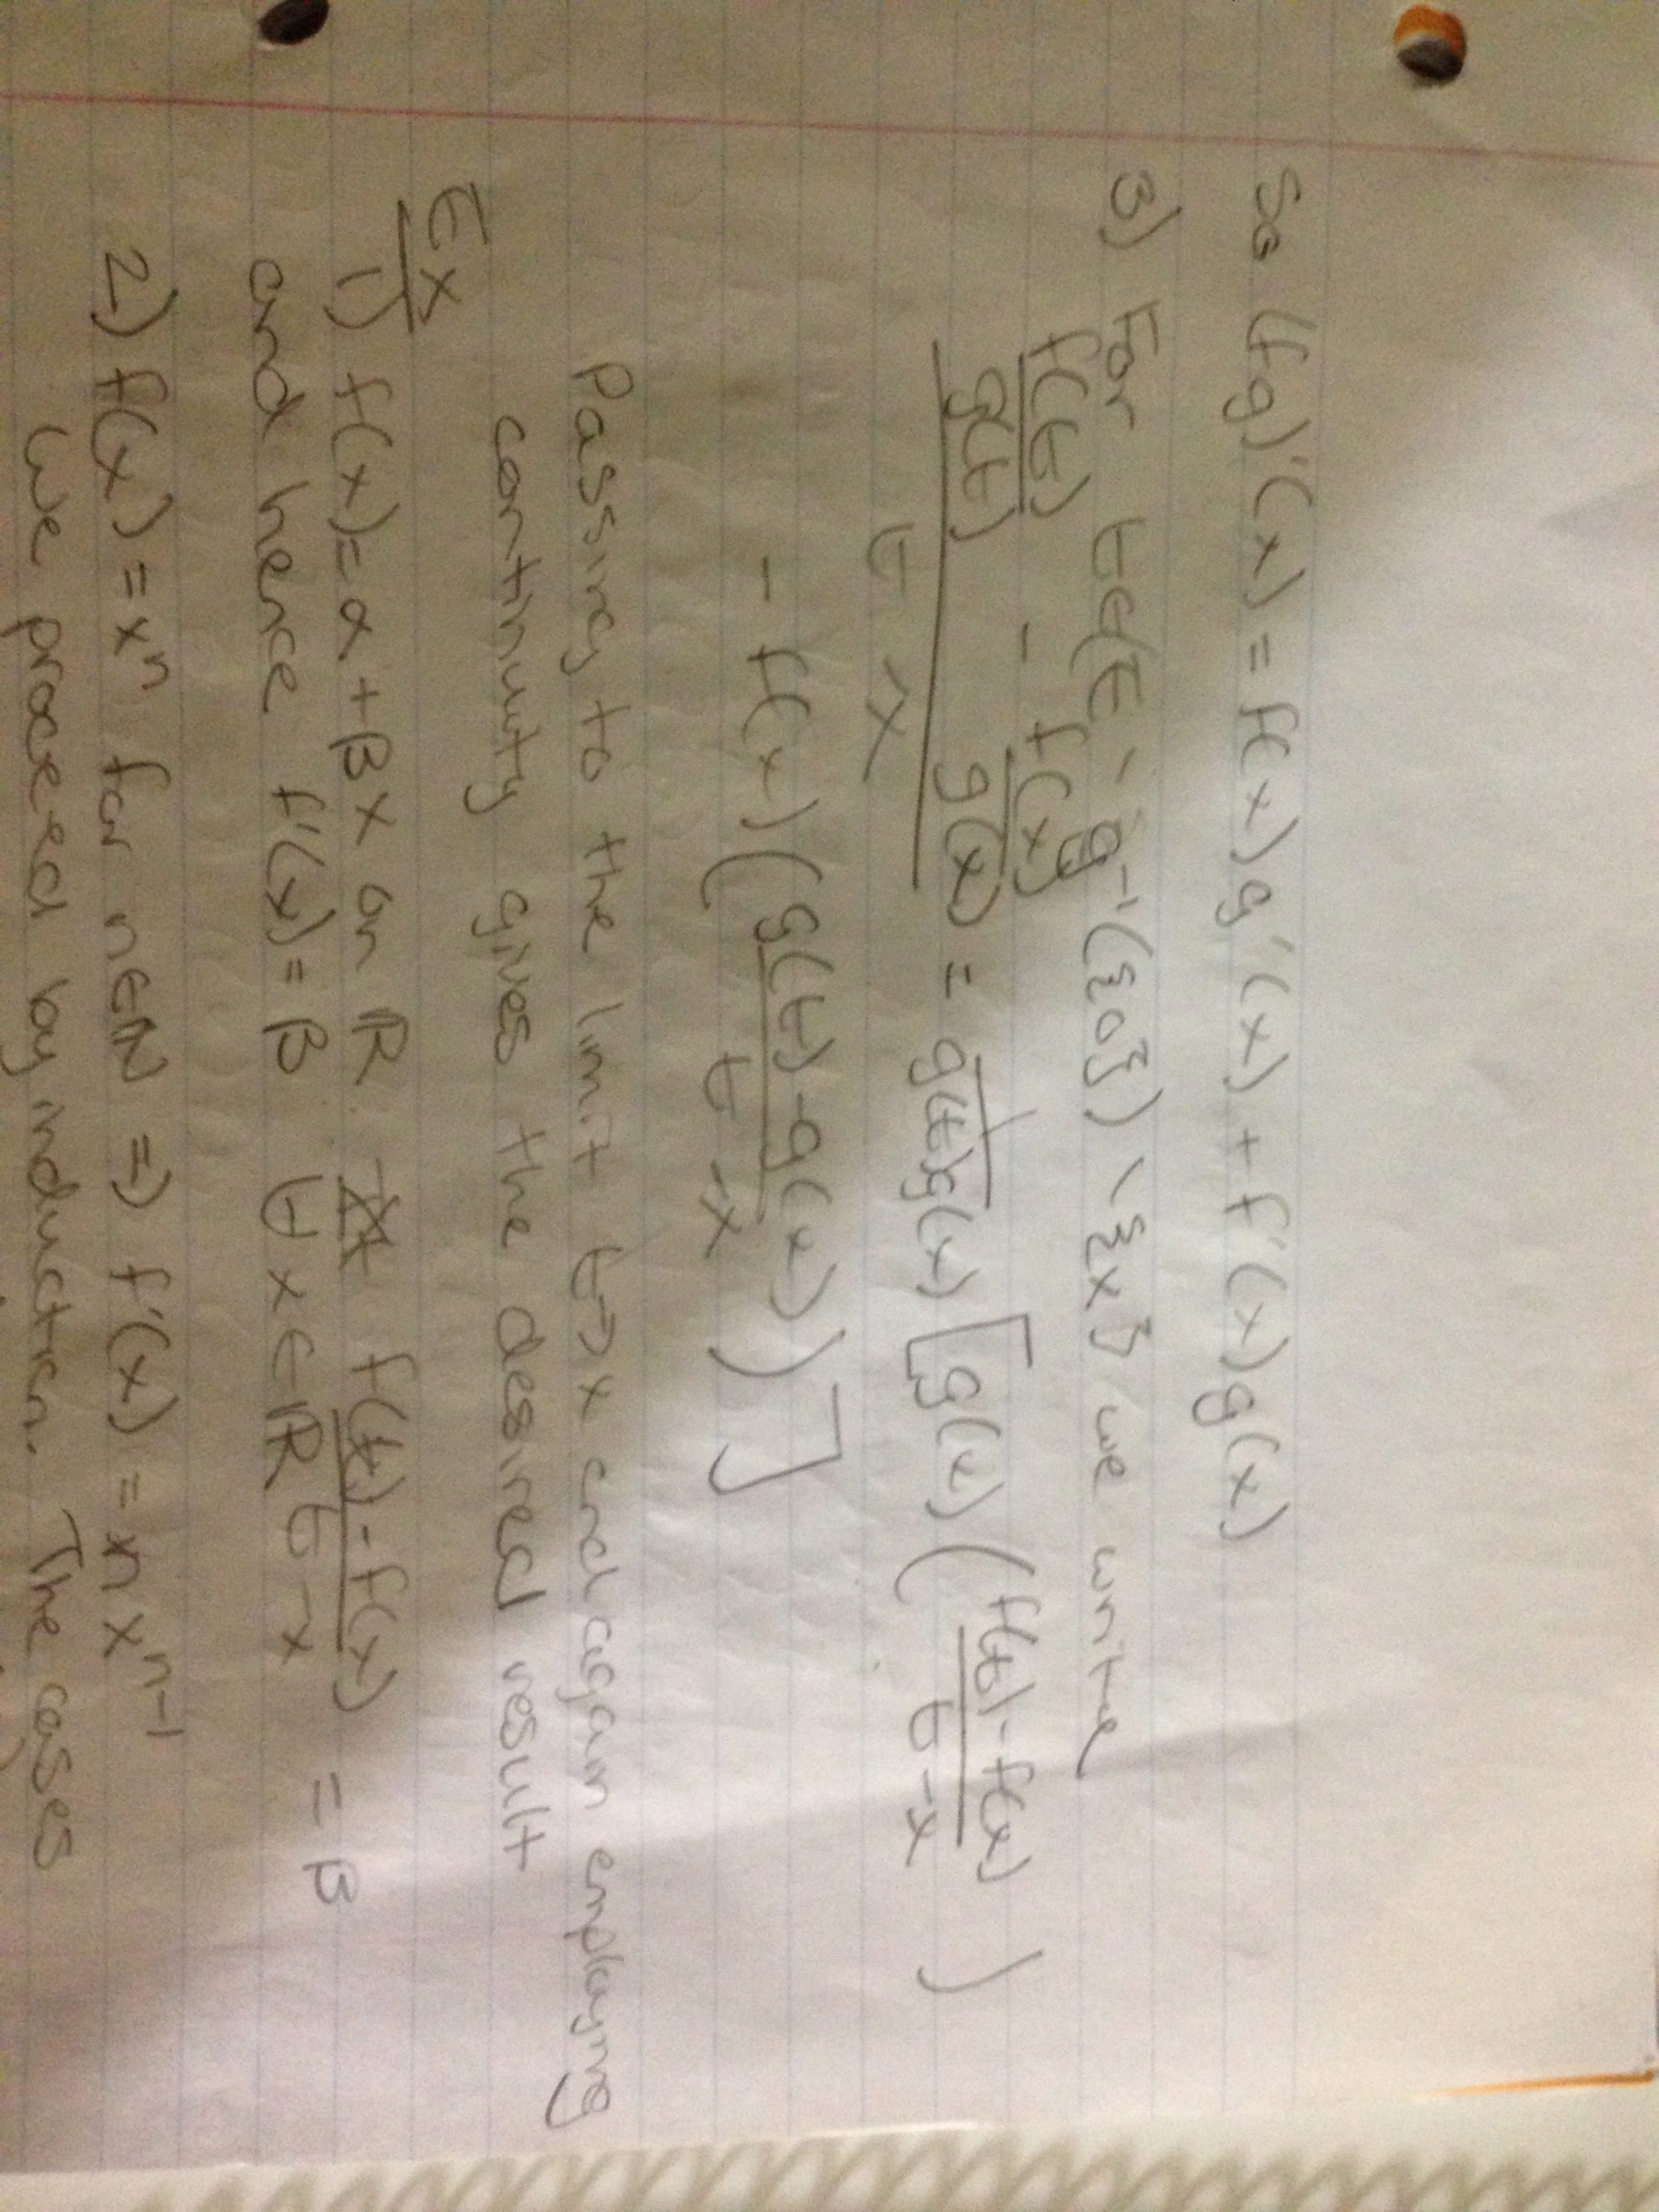 So (fg)'(x) = f(x)g'(x) + f'(x)g(x)
3) For t∈(E \ g⁻¹({0}) \ {x} we write
f(t)/g(t) - f(x)/g(x) / t-x = 1/g(t)g(x) [g(x)(f(t)-f(x)/t-x)
- f(x)(g(t)-g(x)/t-x)]
Passing to the limit t→x and again employing
continuity gives the desired result
Ex
1) f(x)=α+βx on ℝ f(t)-f(x)/t-x = β
and hence f'(x)=β ∀x∈ℝ
2) f(x)=xⁿ for n∈ℕ ⇒ f'(x)=nxⁿ⁻¹
We proceed by induction. The cases